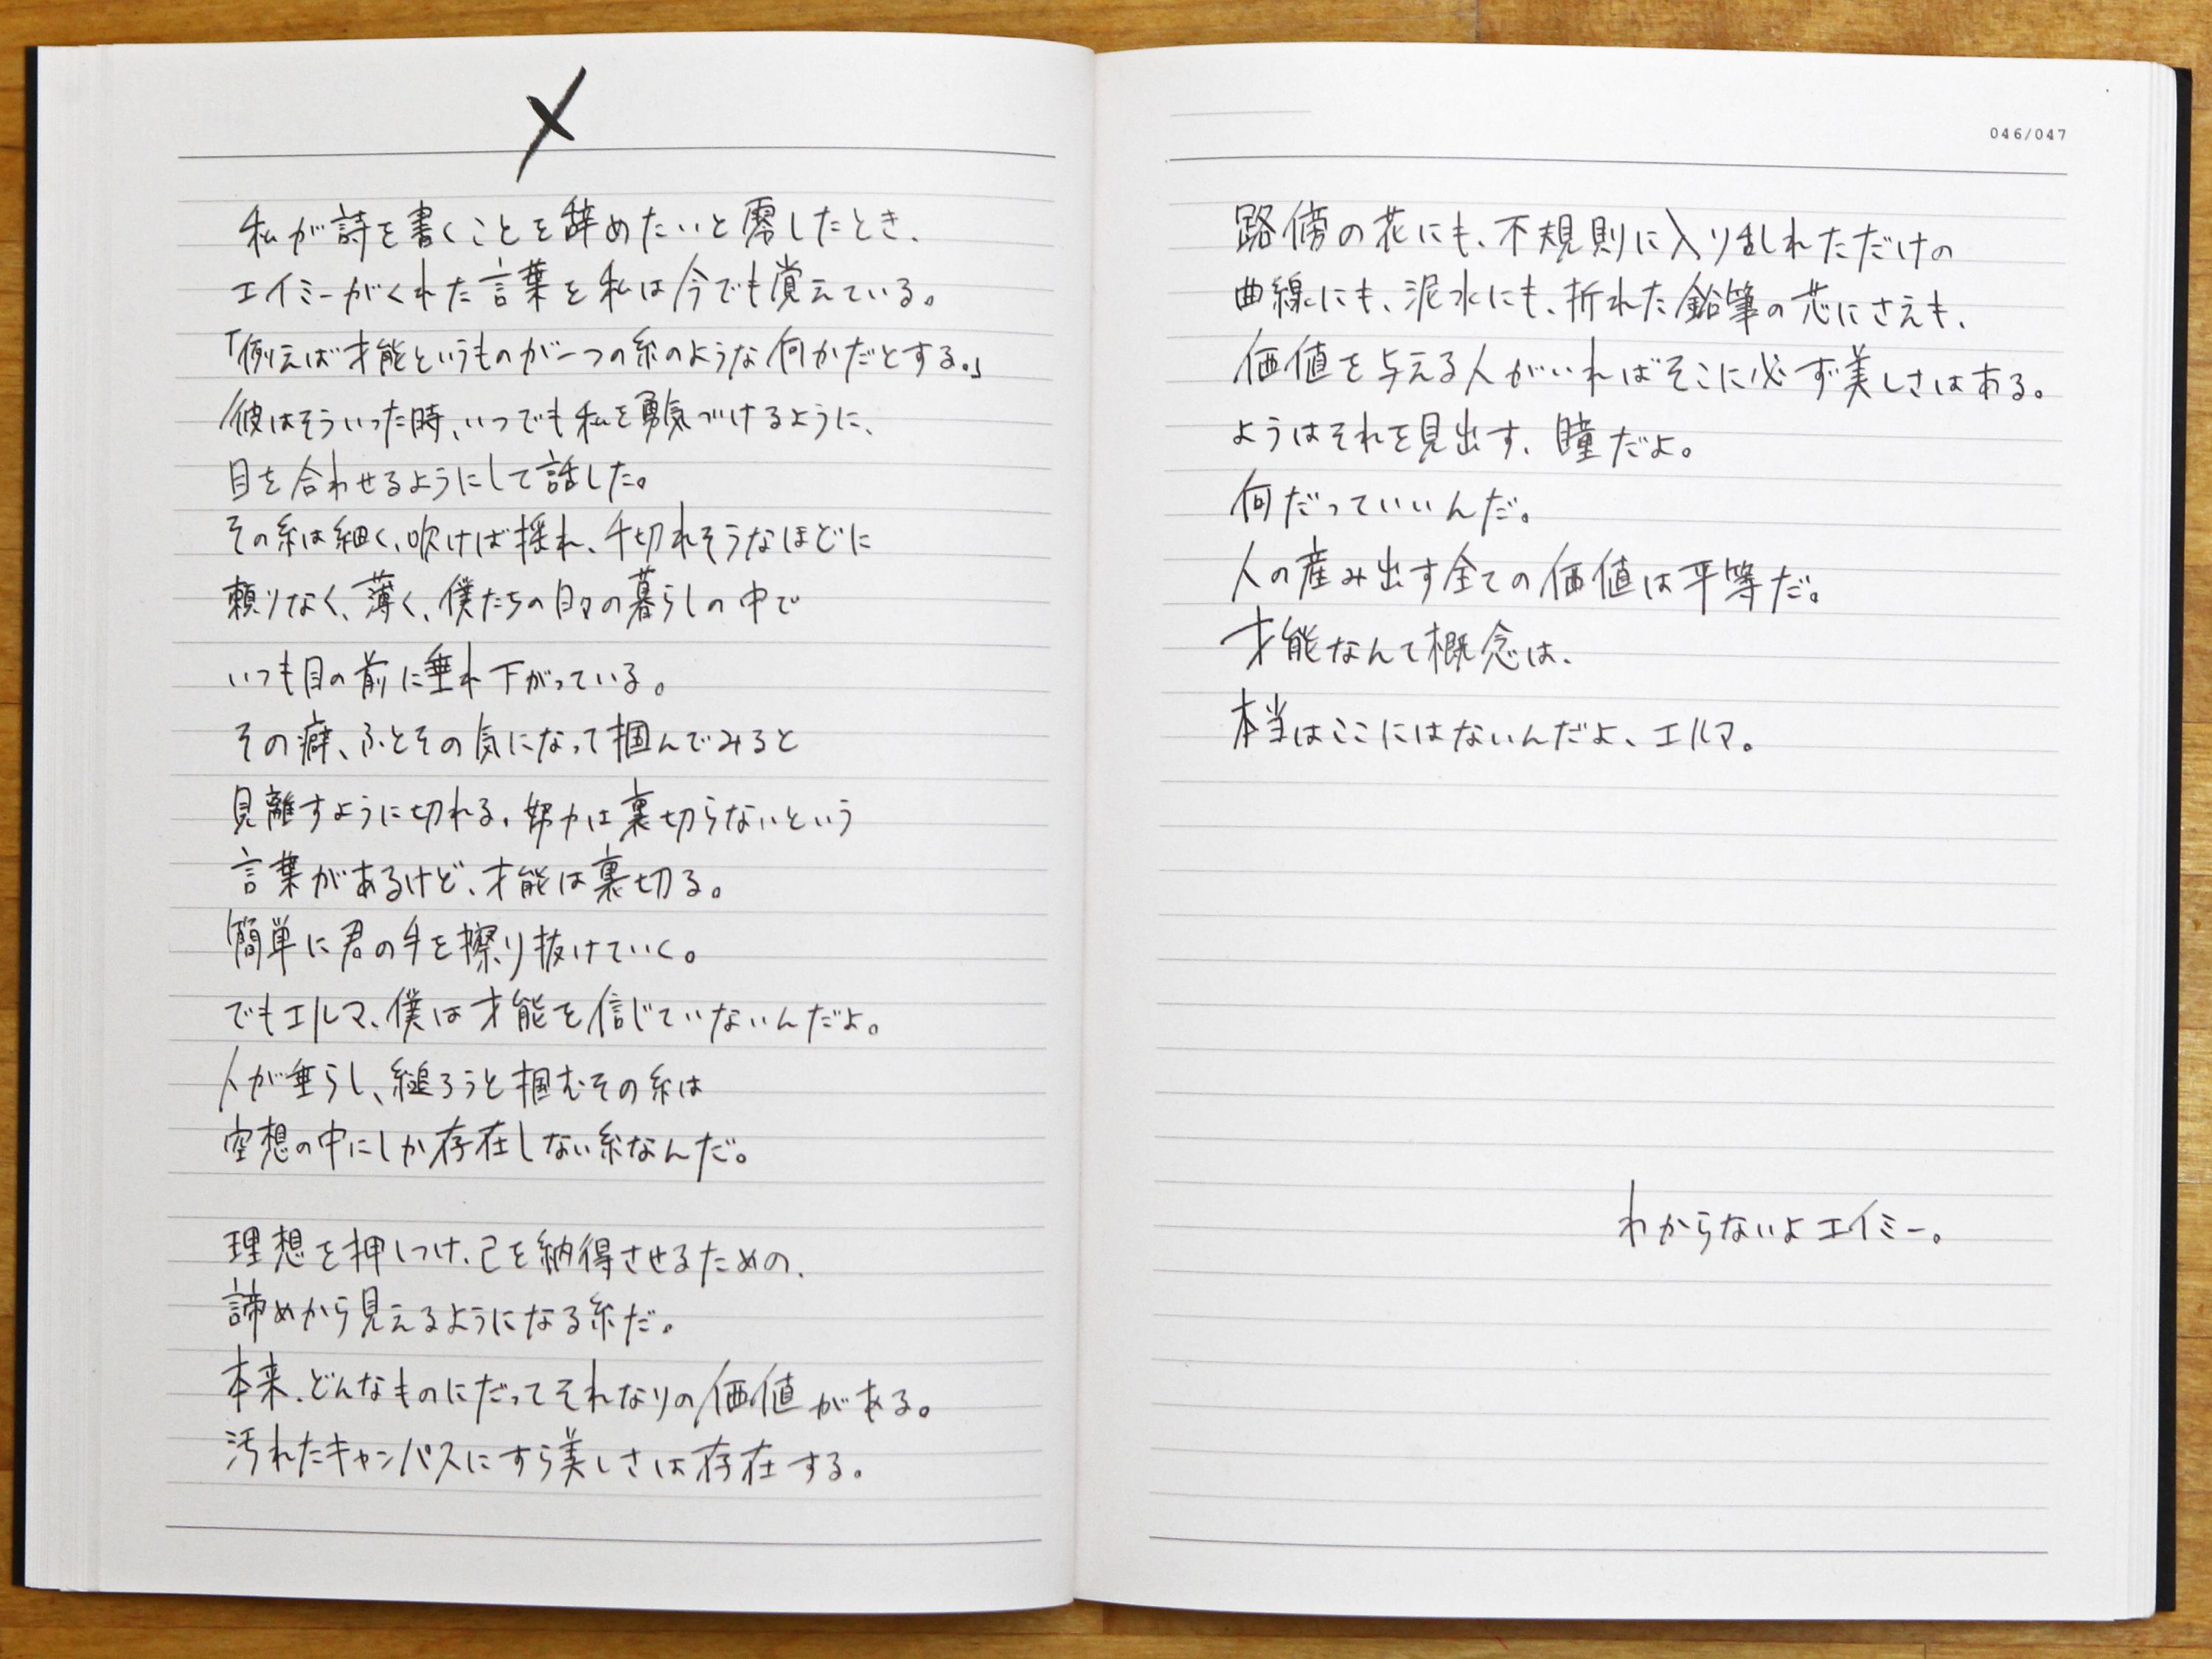 私が詩を書くことを辞めたいと零したとき、
エイミーがくれた言葉を私は今でも覚えている。
「例えば才能というものが一つの糸のような何かだとする。」
彼はそういった時、いつでも私を勇気づけるように、
目を合わせるようにして話した。
その糸は細く、吹けば揺れ、千切れそうなほどに
頼りなく、薄く、僕たちの日々の暮らしの中で
いつも目の前に垂れ下がっている。
その癖、ふとその気になって掴んでみると
見離すように切れる。努力は裏切らないという
言葉があるけど、才能は裏切る。
簡単に君の手を擦り抜けていく。
でもエルマ、僕は才能を信じていないんだよ。
人が垂らし、縋ろうと掴むその糸は
空想の中にしか存在しない糸なんだ。
理想を押しつけ、己を納得させるための、
諦めから見えるようになる糸だ。
本来、どんなものにだってそれなりの価値がある。
汚れたキャンバスにすら美しさは存在する。
046/047
路傍の花にも、不規則に入り乱れただけの
曲線にも、泥水にも、折れた鉛筆の芯にさえも、
価値を与える人がいればそこに必ず美しさはある。
ようはそれを見出す、瞳だよ。
何だっていいんだ。
人の産み出す全ての価値は平等だ。
才能なんて概念は、
本当はここにはないんだよ、エルマ。
わからないよエイミー。